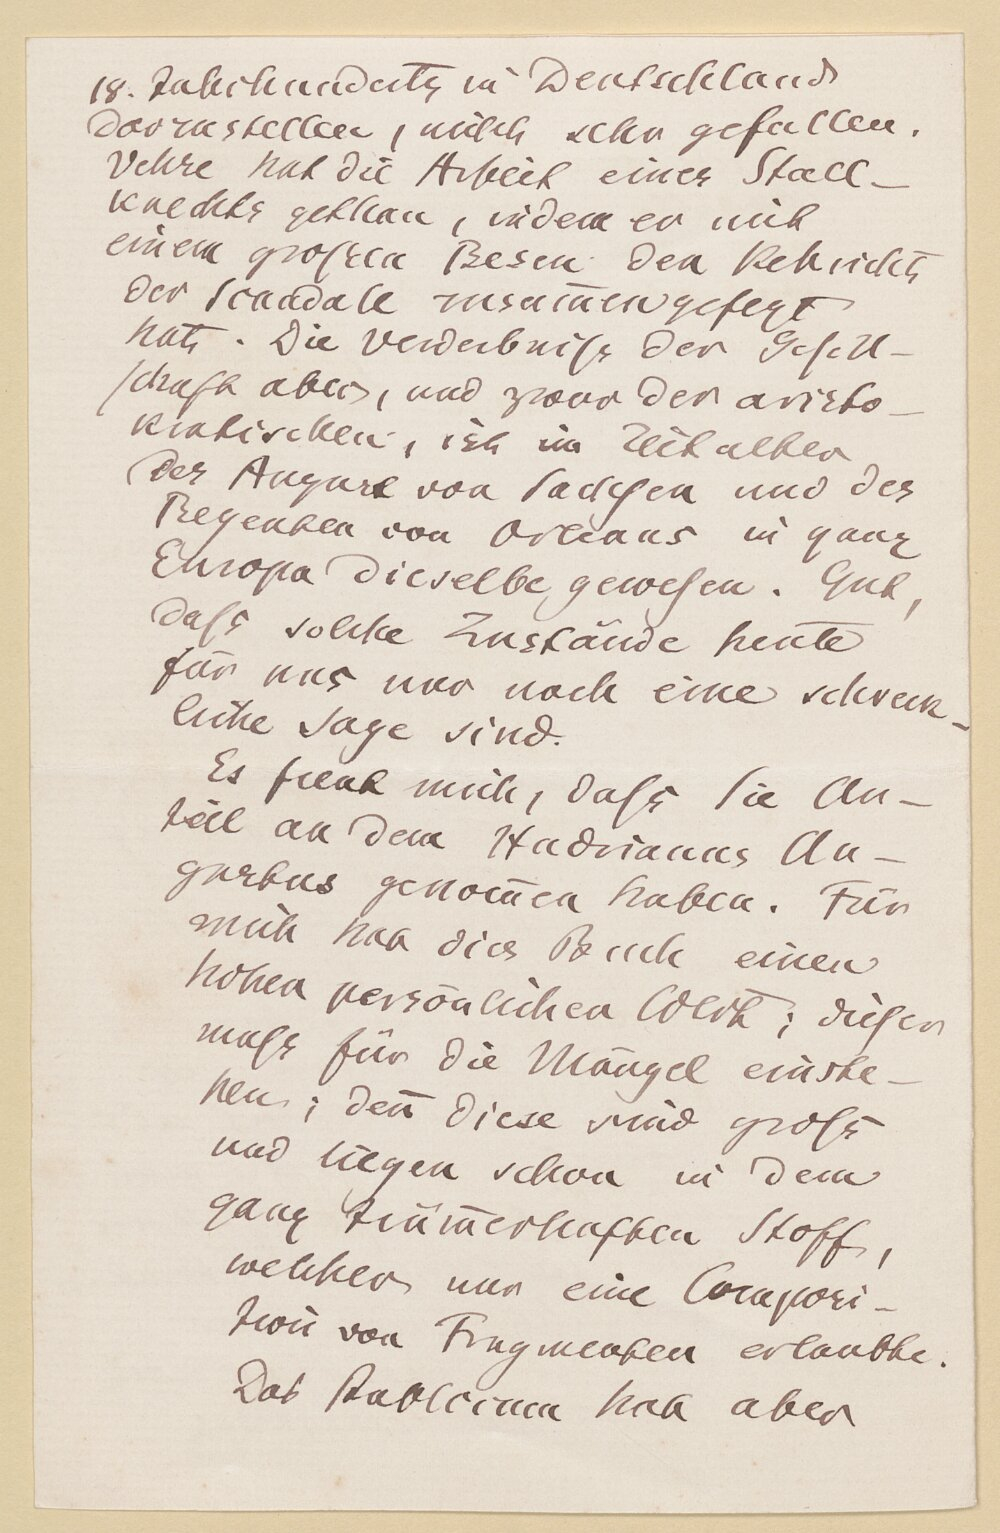 18. Jahrhunderts in Deutschland
darzustellen, mich sehr gefallen.
Vehse hat die Arbeit eines Stall-
knechts gethan, indem er mit
einem großen Besen den Kehricht
der Scandale zusam̅engefegt
hat. Die Verderbniß der Gesell-
schaft aber, und zwar der aristo-
kratischen, ist im Zeitalter
des August von Sachsen und des
Regenten von Orleans in ganz
Europa dieselbe gewesen. Gut,
daß solche Zustände heute
für uns nur noch eine schreck-
liche Sage sind.
Es freut mich, daß Sie An-
teil an dem Hadrianus Au-
gustus genom̅en haben. Für
mich hat dies Buch einen
hohen persönlichen Wert; dieser
muß für die Mängel einste-
hen; den̅ diese sind groß
und liegen schon in dem
ganz trüm̅erhaften Stoff,
welcher nur eine Composi-
tion von Fragmenten erlaubte.
Das Publicum hat aber